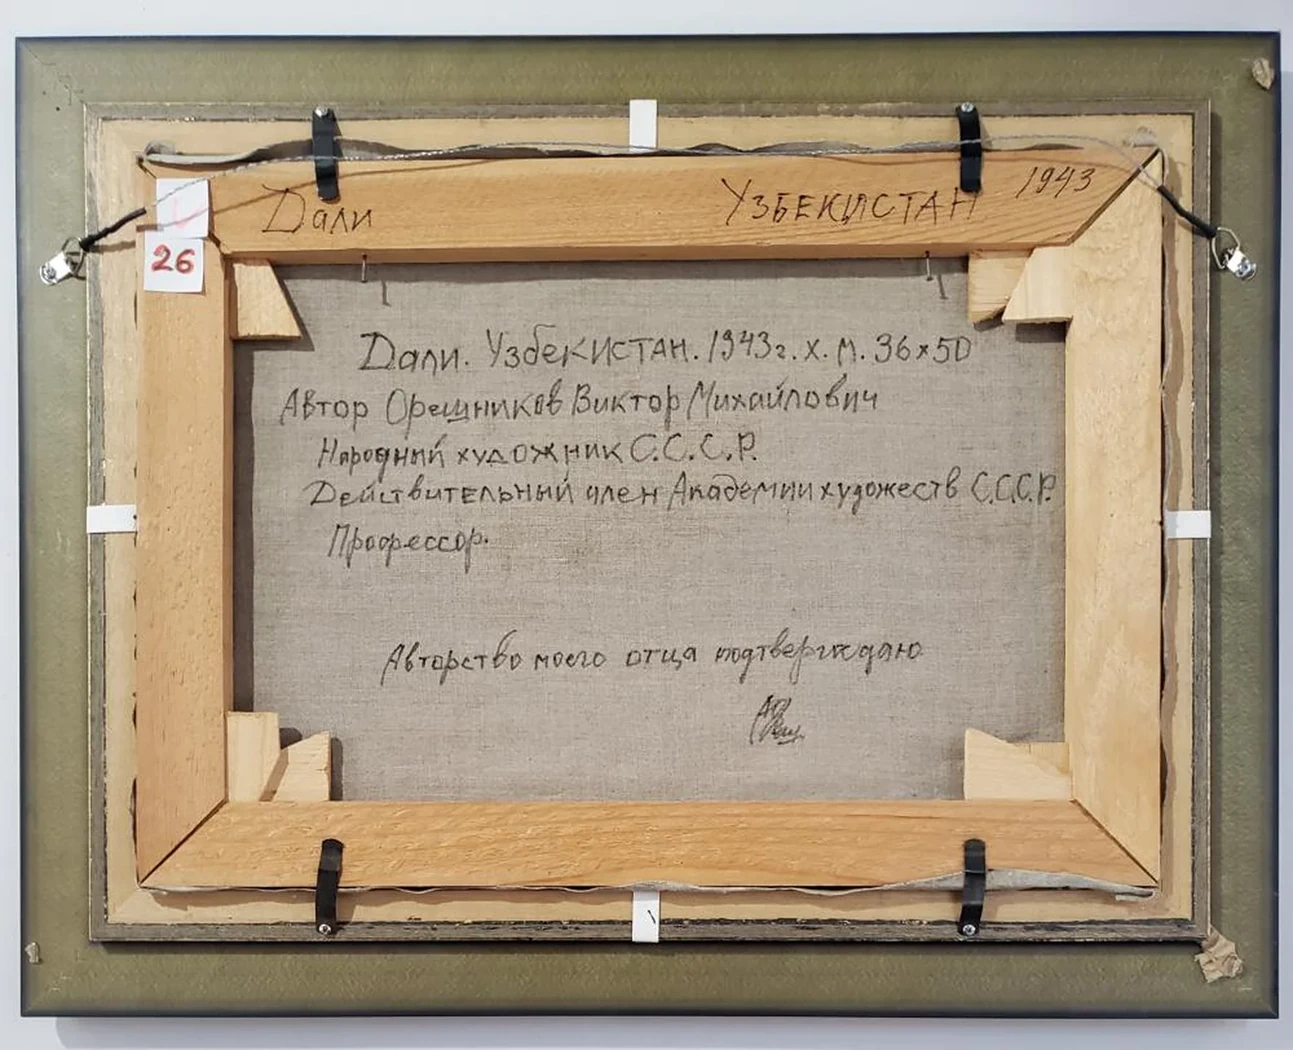 Дали УЗБЕКИСТАН 1943
26
Дали. Узбекистан. 1943г. Х. М. 36х50
Автор Орешников Виктор Михайлович
Народный художник С.С.С.Р.
Действительный член Академии художеств С.С.С.Р.
Профессор.
Авторство моего отца подтверждаю